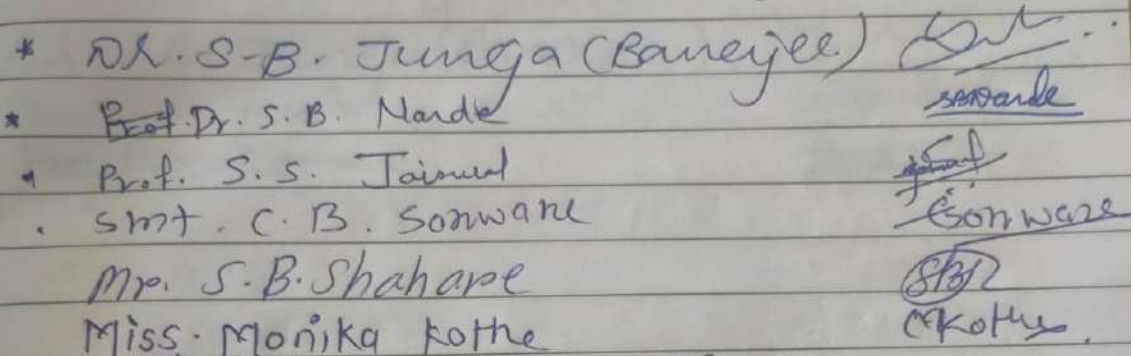 * Dr. S-B. Junga (Banerjee)
* Prof. Dr. S. B. Narde sbnarde
• Prof. S. S. Jaiswal
• Smt. C. B. Sonware Sonware
Mr. S. B. Shahare SBS
Miss. Monika Kothe MKothe